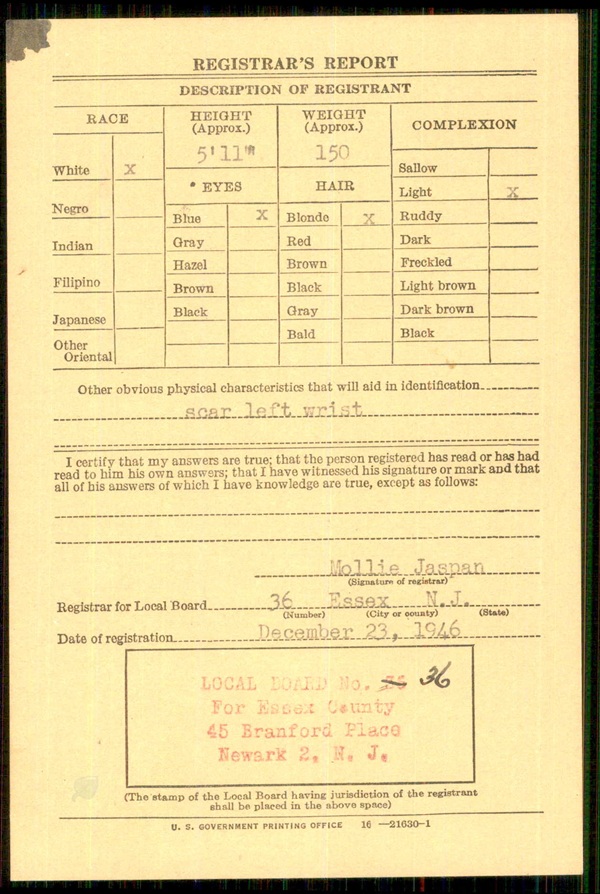 REGISTRAR'S REPORT
DESCRIPTION OF REGISTRANT
RACE
HEIGHT
(Approx.)
WEIGHT
(Approx.)
COMPLEXION
5'11"
150
White X
Sallow
EYES
HAIR
Light X
Negro
Blue X
Blonde X
Ruddy
Indian
Gray
Red
Dark
Hazel
Brown
Freckled
Filipino
Brown
Black
Light brown
Japanese
Black
Gray
Dark brown
Bald
Black
Other
Oriental
Other obvious physical characteristics that will aid in identification
scar left wrist
I certify that my answers are true; that the person registered has read or has had
read to him his own answers; that I have witnessed his signature or mark and that
all of his answers of which I have knowledge are true, except as follows:
Mollie Jaspan
(Signature of registrar)
Registrar for Local Board 36 Essex N.J.
(Number) (City or county) (State)
Date of registration December 23, 1946
LOCAL BOARD No. 36
For Essex County
45 Branford Place
Newark 2, N. J.
(The stamp of the Local Board having jurisdiction of the registrant
shall be placed in the above space)
U. S. GOVERNMENT PRINTING OFFICE 16—21630-1